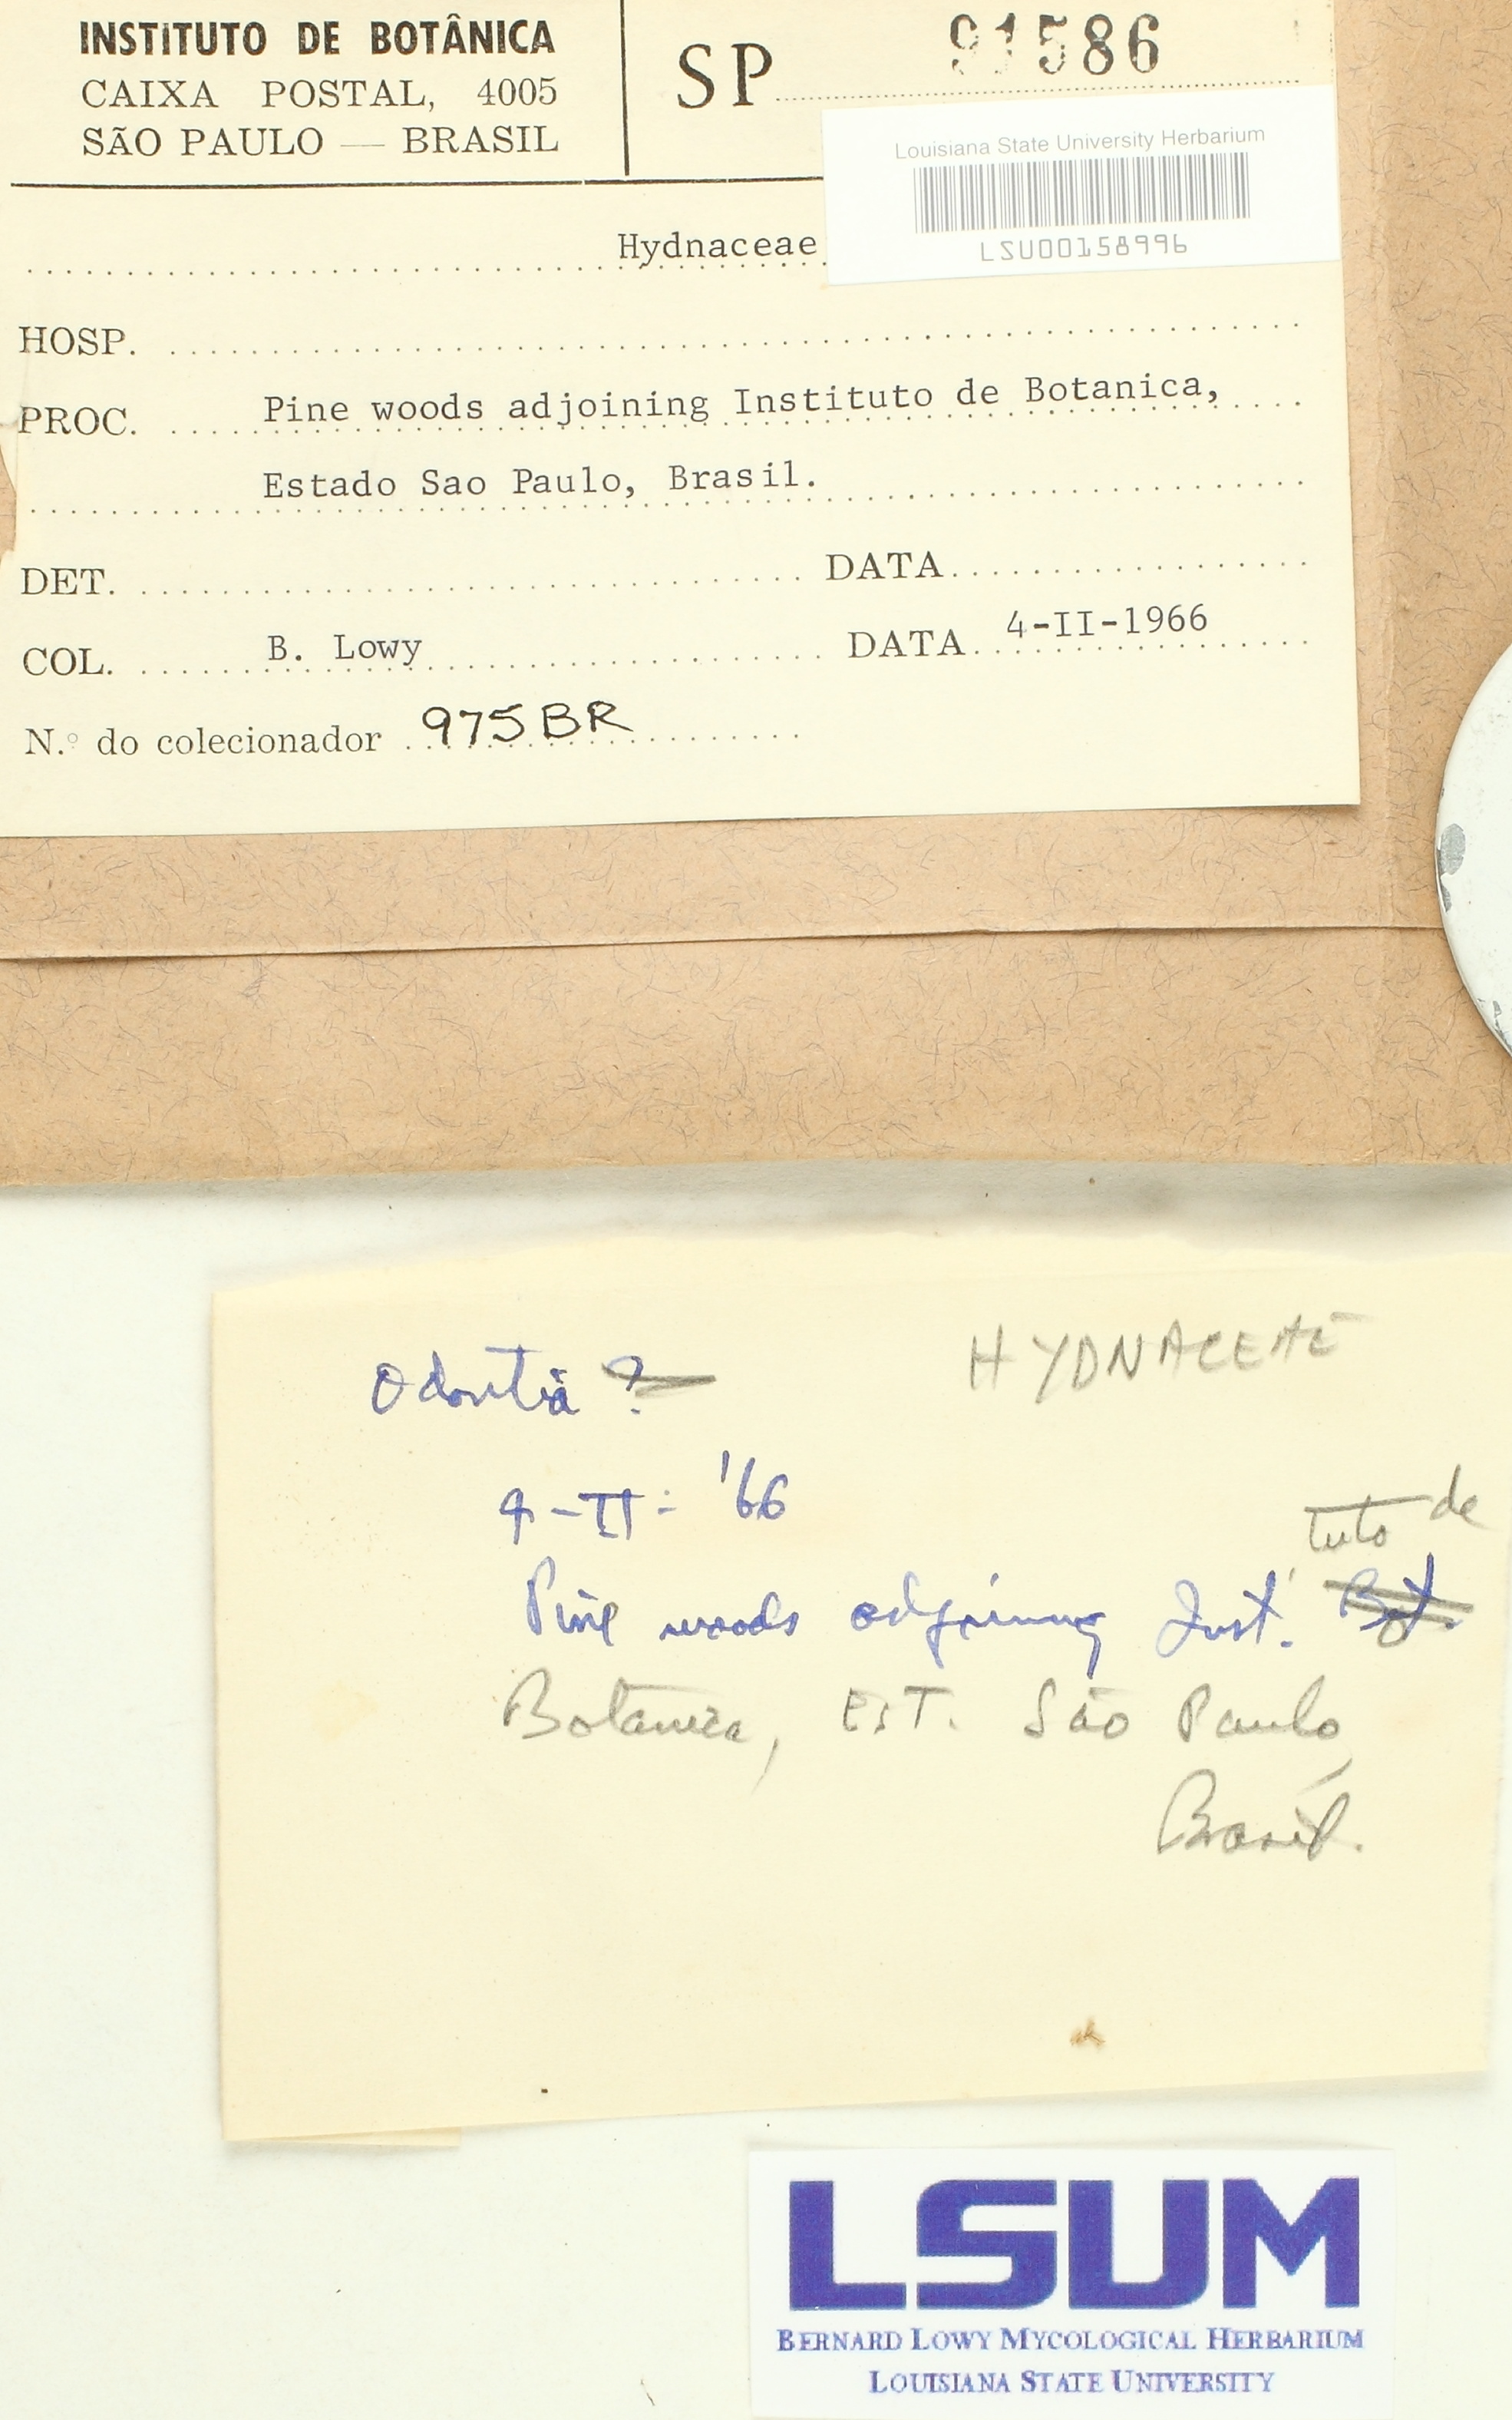 INSTITUTO DE BOTÂNICA
CAIXA POSTAL, 4005
SÃO PAULO — BRASIL
SP 91586
Louisiana State University Herbarium
LSU00158996
Hydnaceae
HOSP.
PROC. Pine woods adjoining Instituto de Botanica,
Estado Sao Paulo, Brasil.
DET. DATA
COL. B. Lowy DATA 4-II-1966
N.º do colecionador 975BR
HYDNACEAE
Odontia ?
4-II-'66
tuto de
Pine woods adjoining Inst. Bot.
Botanica, EST. São Paulo,
Brasil.
LSUM
BERNARD LOWY MYCOLOGICAL HERBARIUM
LOUISIANA STATE UNIVERSITY